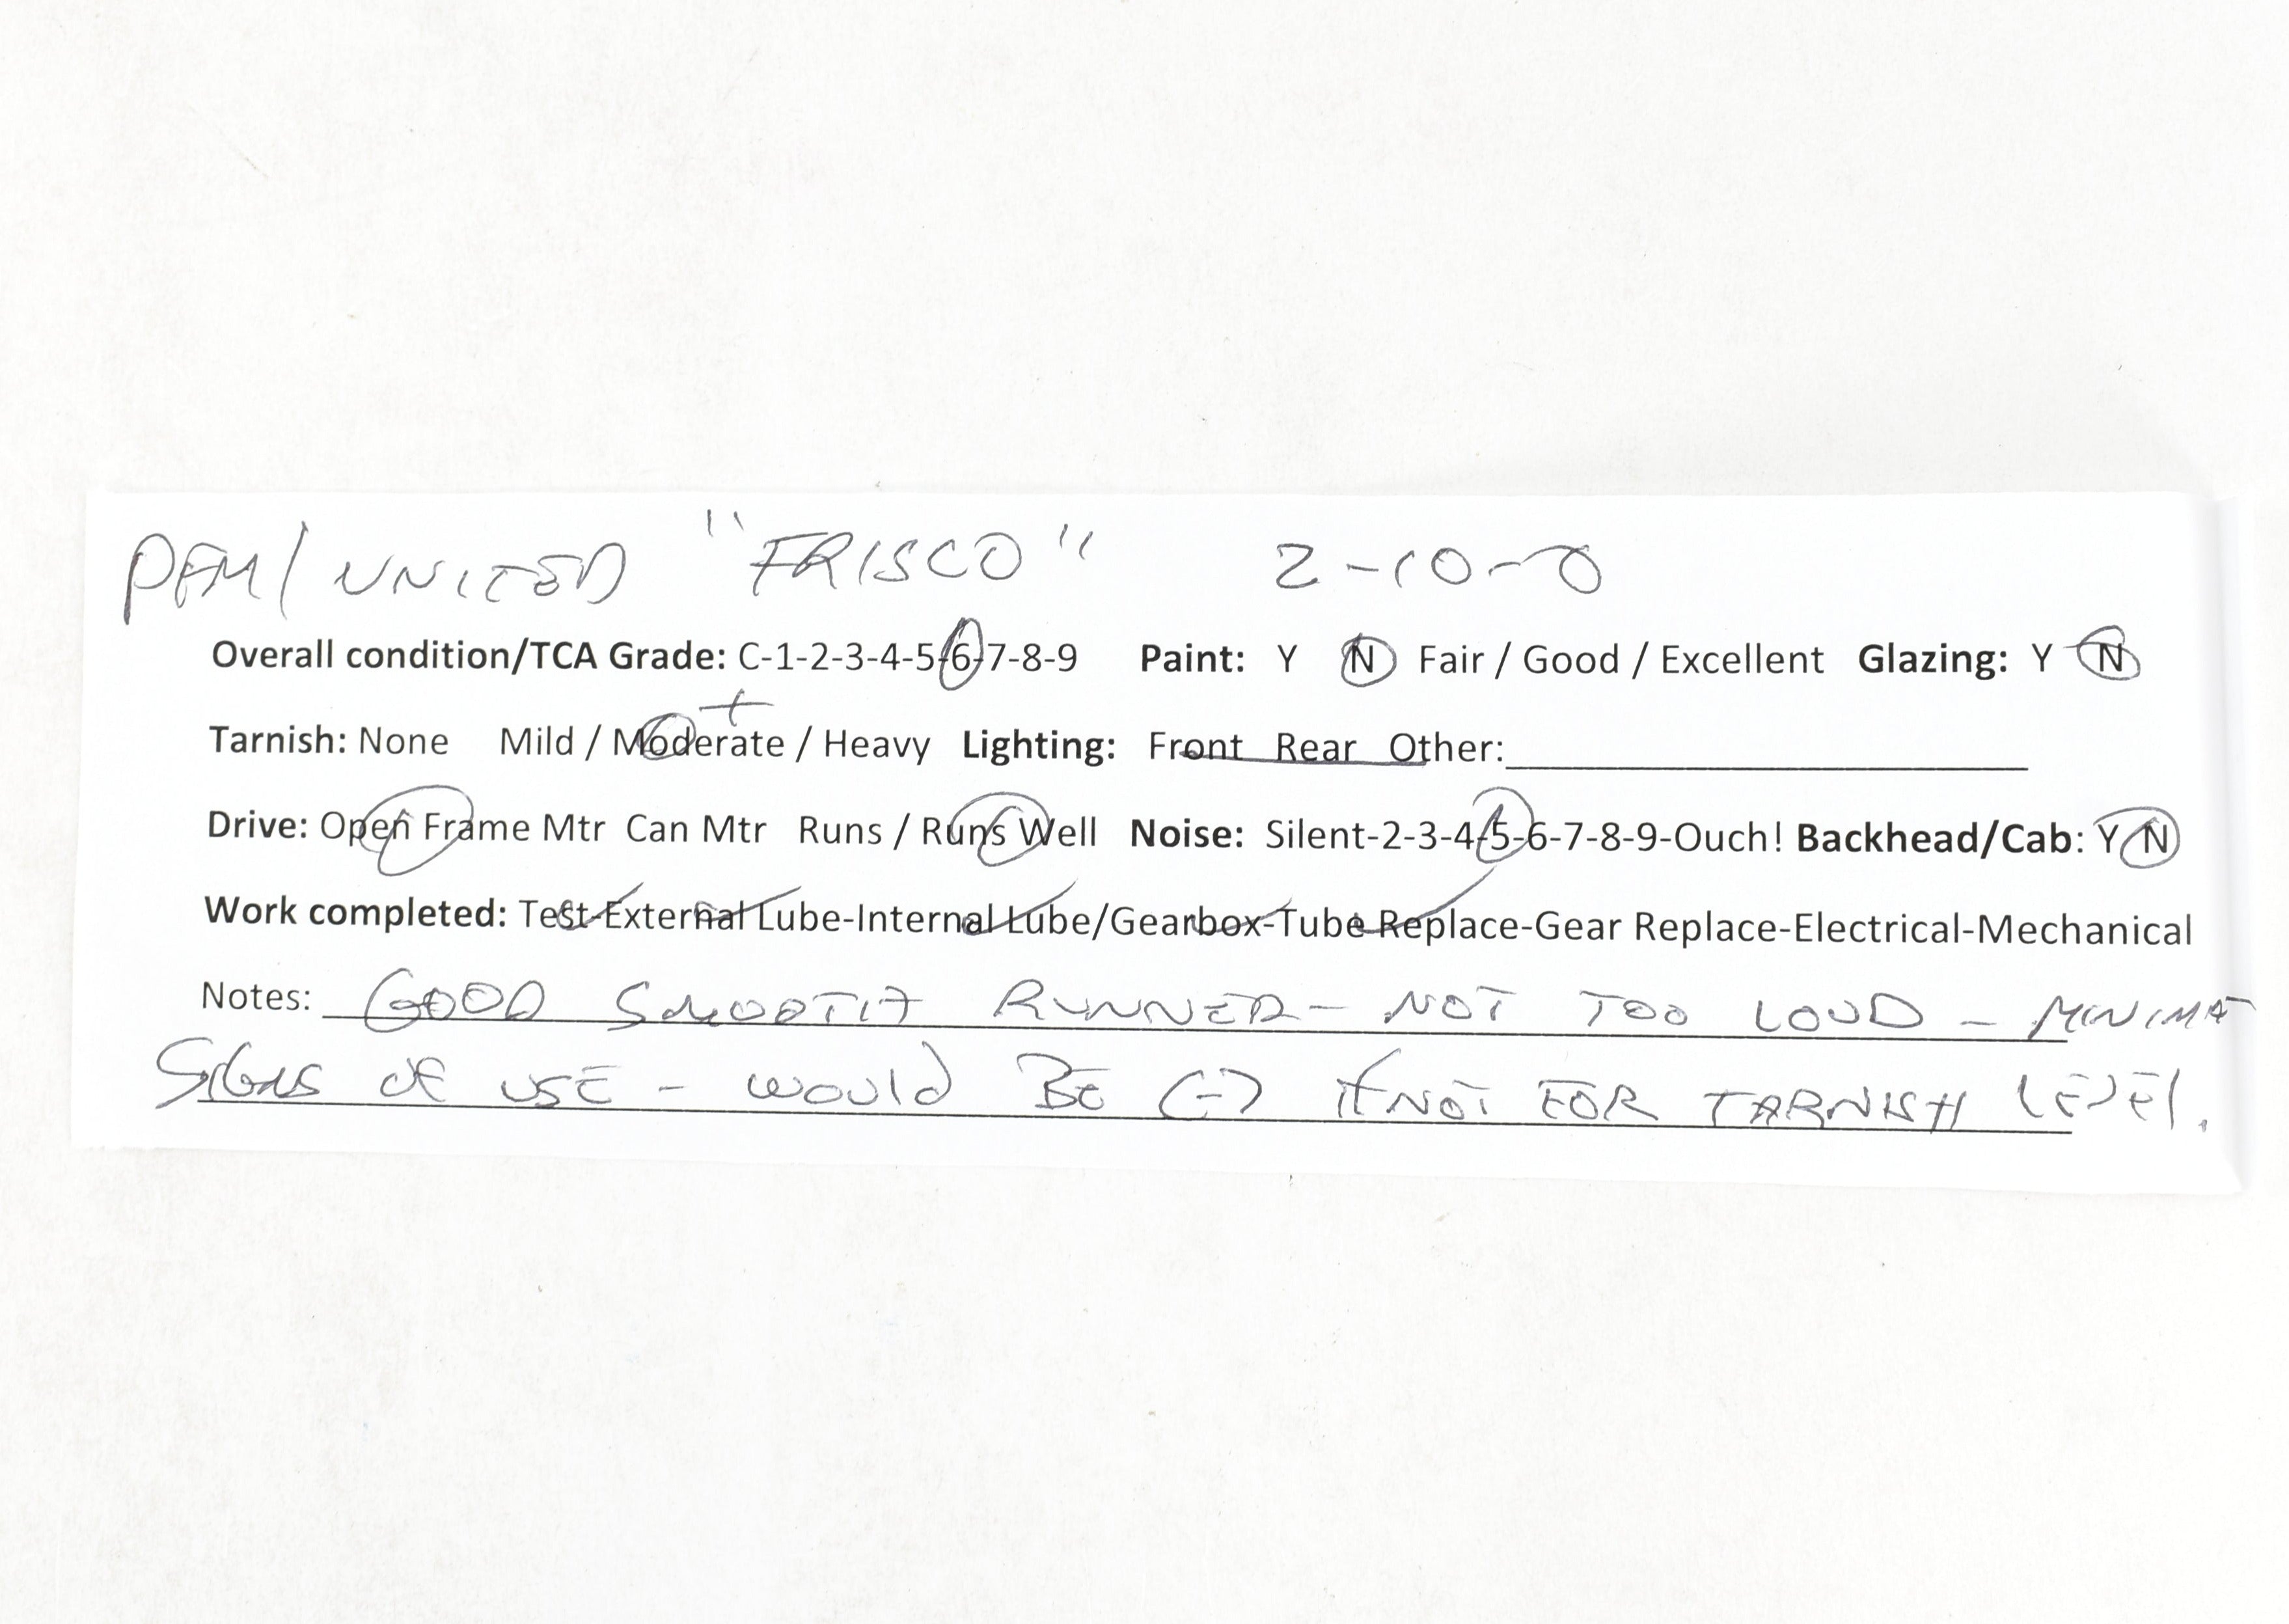 PFM/UNITED "FRISCO" 2-10-0
Overall condition/TCA Grade: C-1-2-3-4-5-6-7-8-9 Paint: Y N Fair / Good / Excellent Glazing: Y N
+
Tarnish: None Mild / Moderate / Heavy Lighting: Front Rear Other:
Drive: Open Frame Mtr Can Mtr Runs / Runs Well Noise: Silent-2-3-4-5-6-7-8-9-Ouch! Backhead/Cab: Y N
Work completed: Test-External Lube-Internal Lube/Gearbox-Tube Replace-Gear Replace-Electrical-Mechanical
Notes: GOOD SMOOTH RUNNER - NOT TOO LOUD - MINIMAL
SIGNS OF USE - WOULD BE (-) IF NOT FOR TARNISH LEVEL.